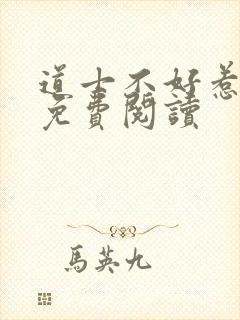 道士不好惹
免費閱讀
馬英九